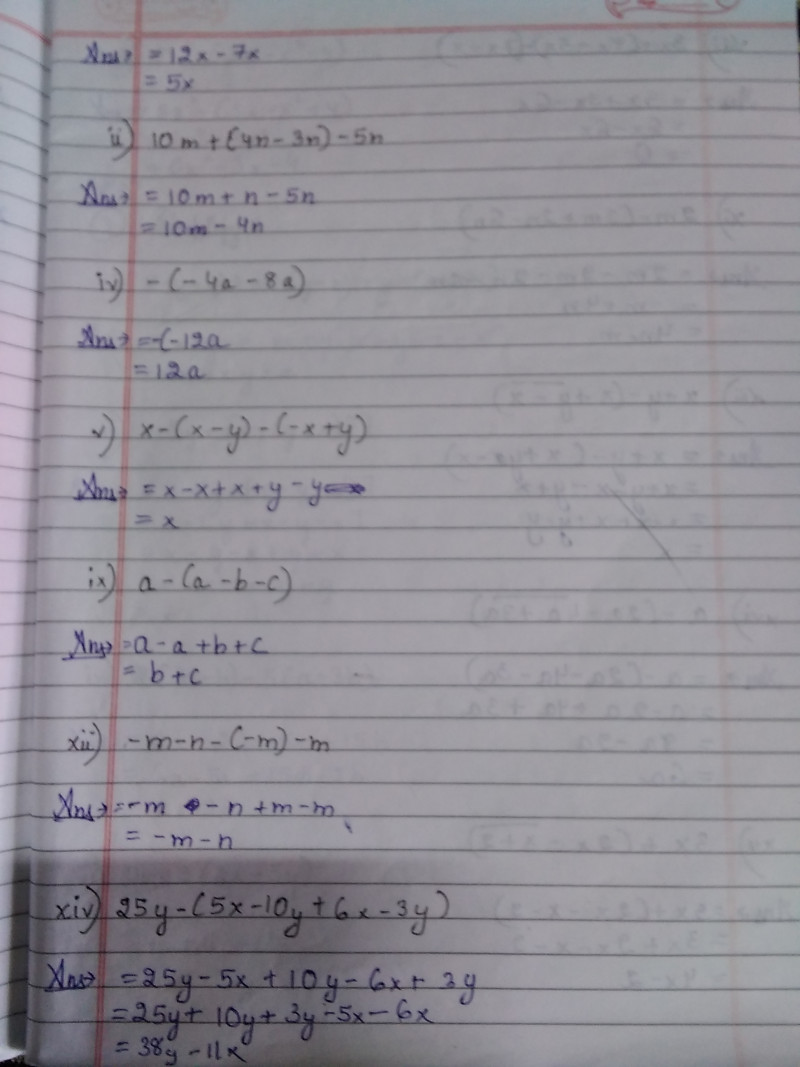 Ans→ = 12x - 7x
= 5x
ii) 10m + (4n - 3n) - 5n
Ans→ = 10m + n - 5n
= 10m - 4n
iv) - (- 4a - 8a)
Ans→ = -(-12a
= 12a
v) x - (x - y) - (-x + y)
Ans→ = x - x + x + y - y
= x
ix) a - (a - b - c)
Ans→ = a - a + b + c
= b + c
xii) -m - n - (-m) - m
Ans→ = -m - n + m - m
= -m - n
xiv) 25y - (5x - 10y + 6x - 3y)
Ans→ = 25y - 5x + 10y - 6x + 3y
= 25y + 10y + 3y - 5x - 6x
= 38y - 11x